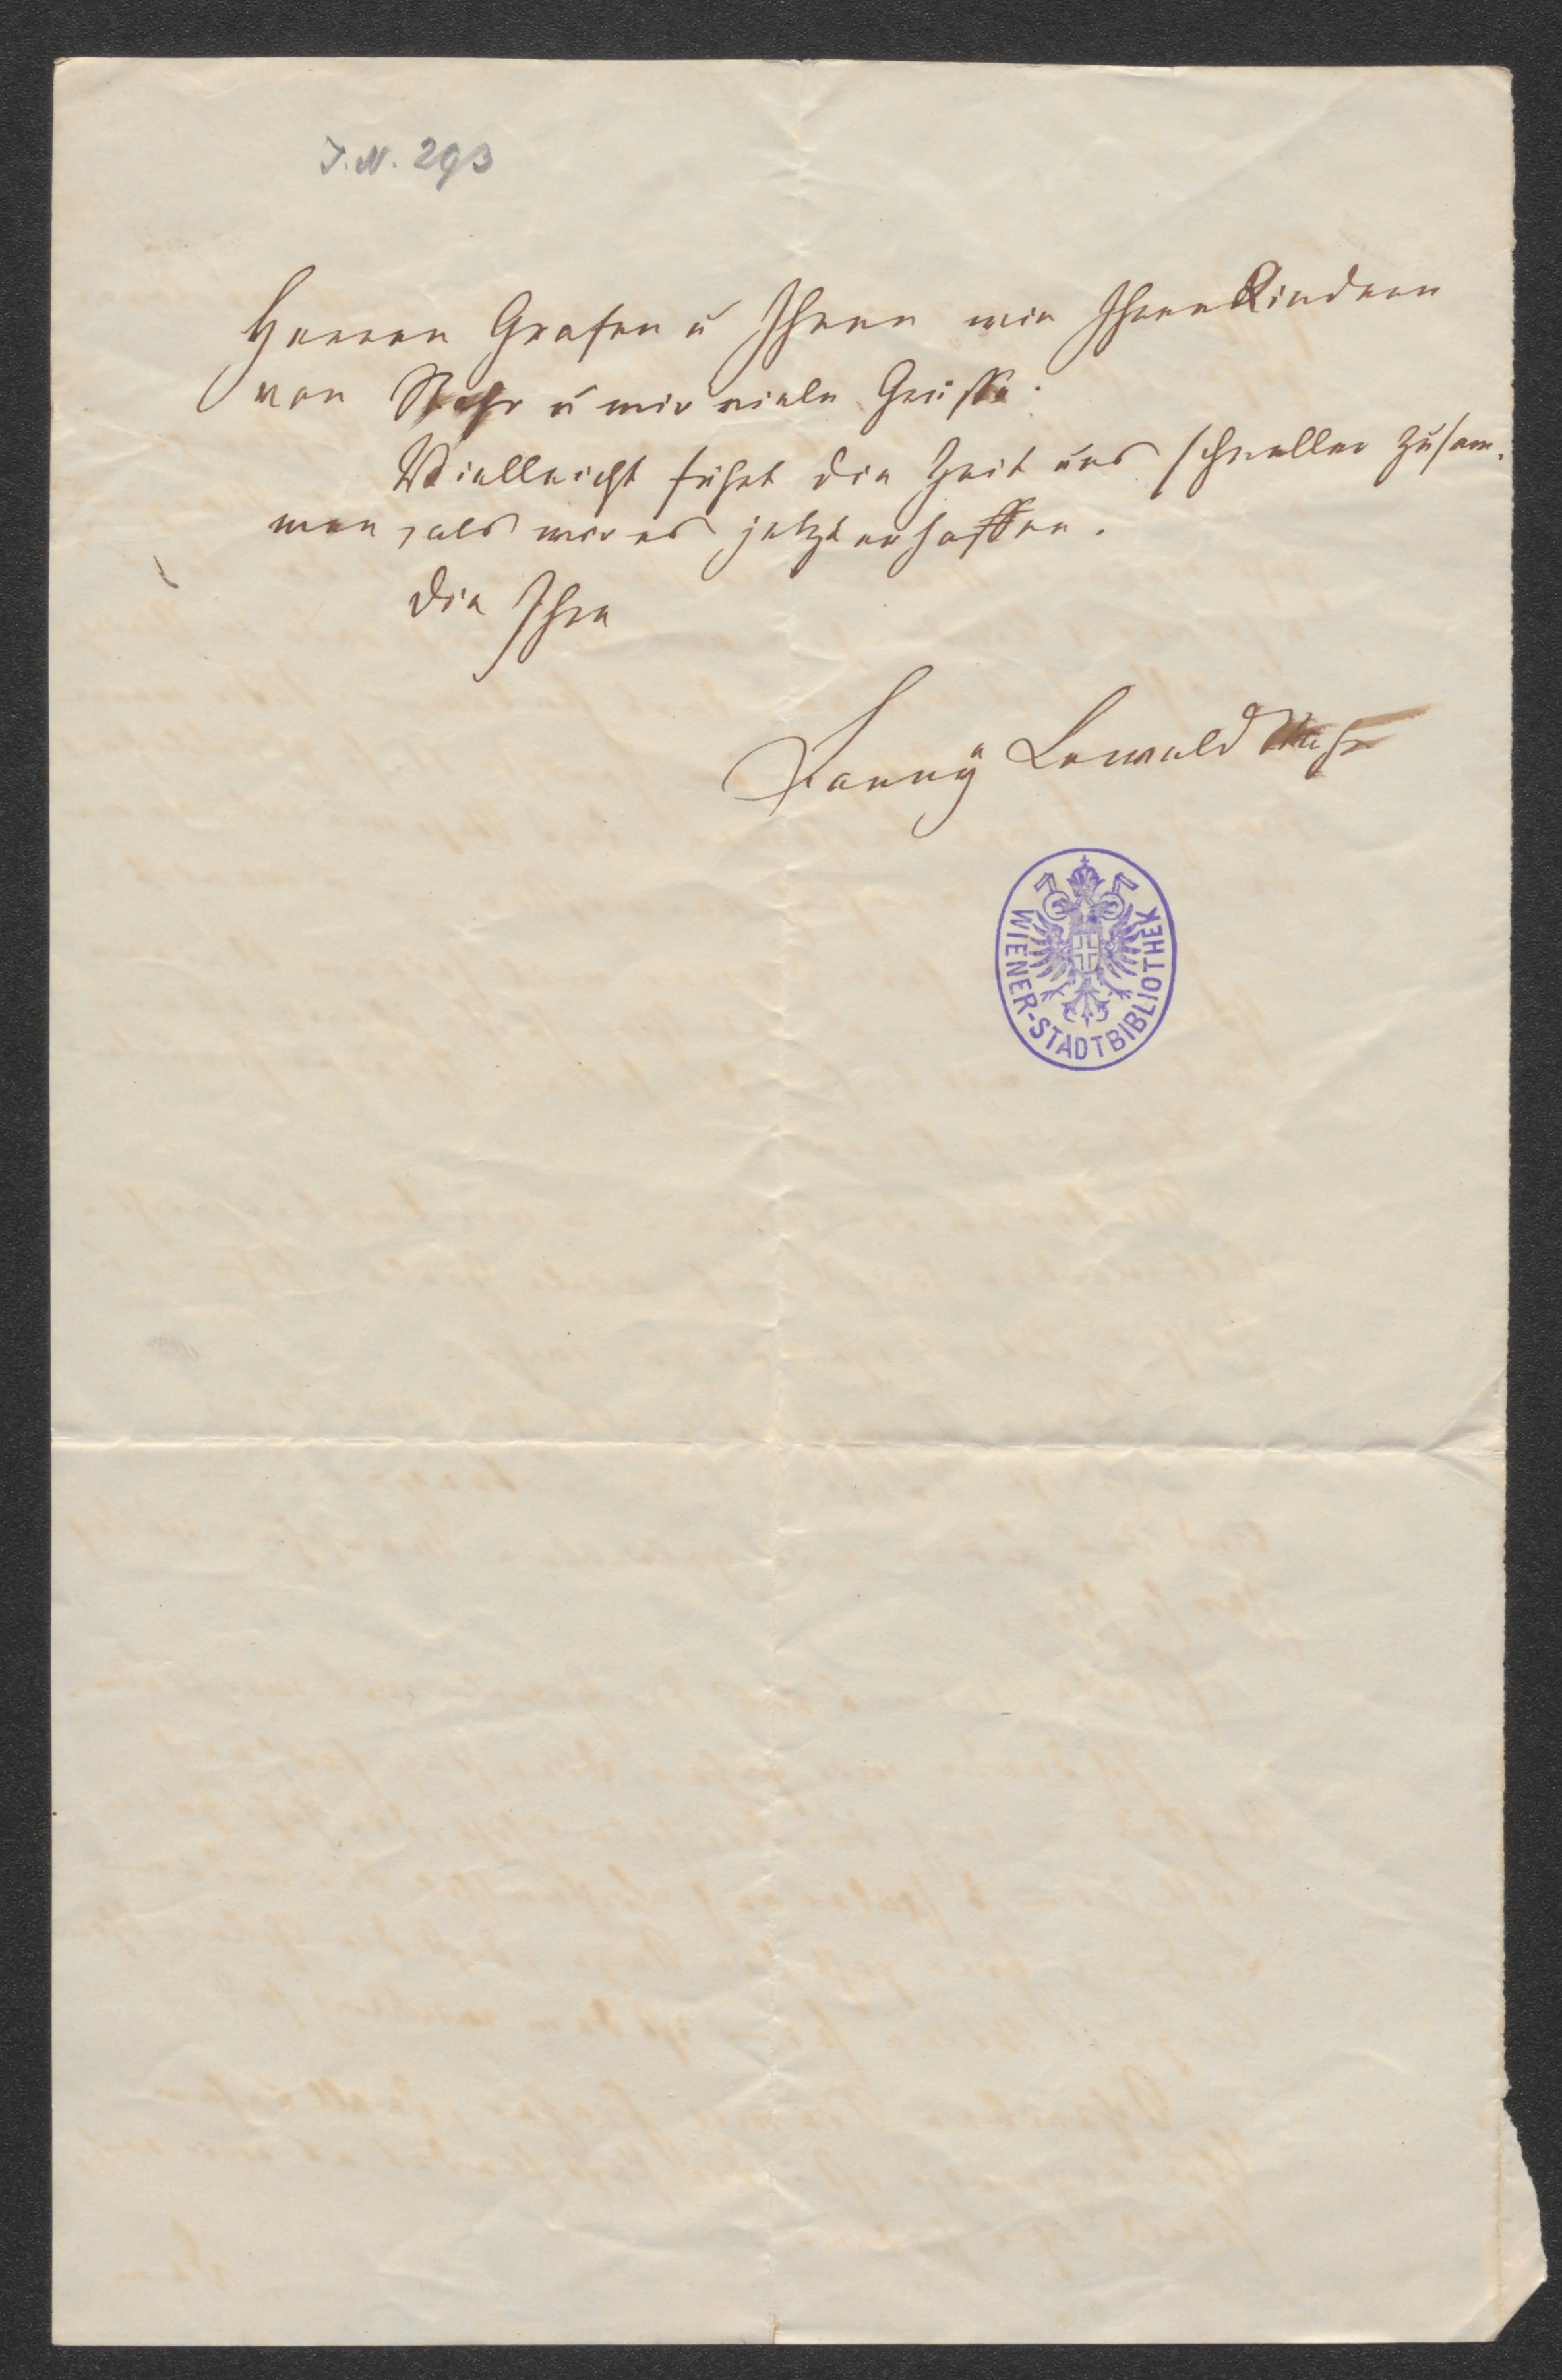 J.N. 293
Herren Grafen u Ihnen wie Ihren Kindern
von Stahr u mir viele Grüße.
Vielleicht führt die Zeit uns schneller zusam-
men, als wir es jetzt erhoffen.
Die Ihre
Fanny Lewald Stahr
WIENER-STADTBIBLIOTHEK